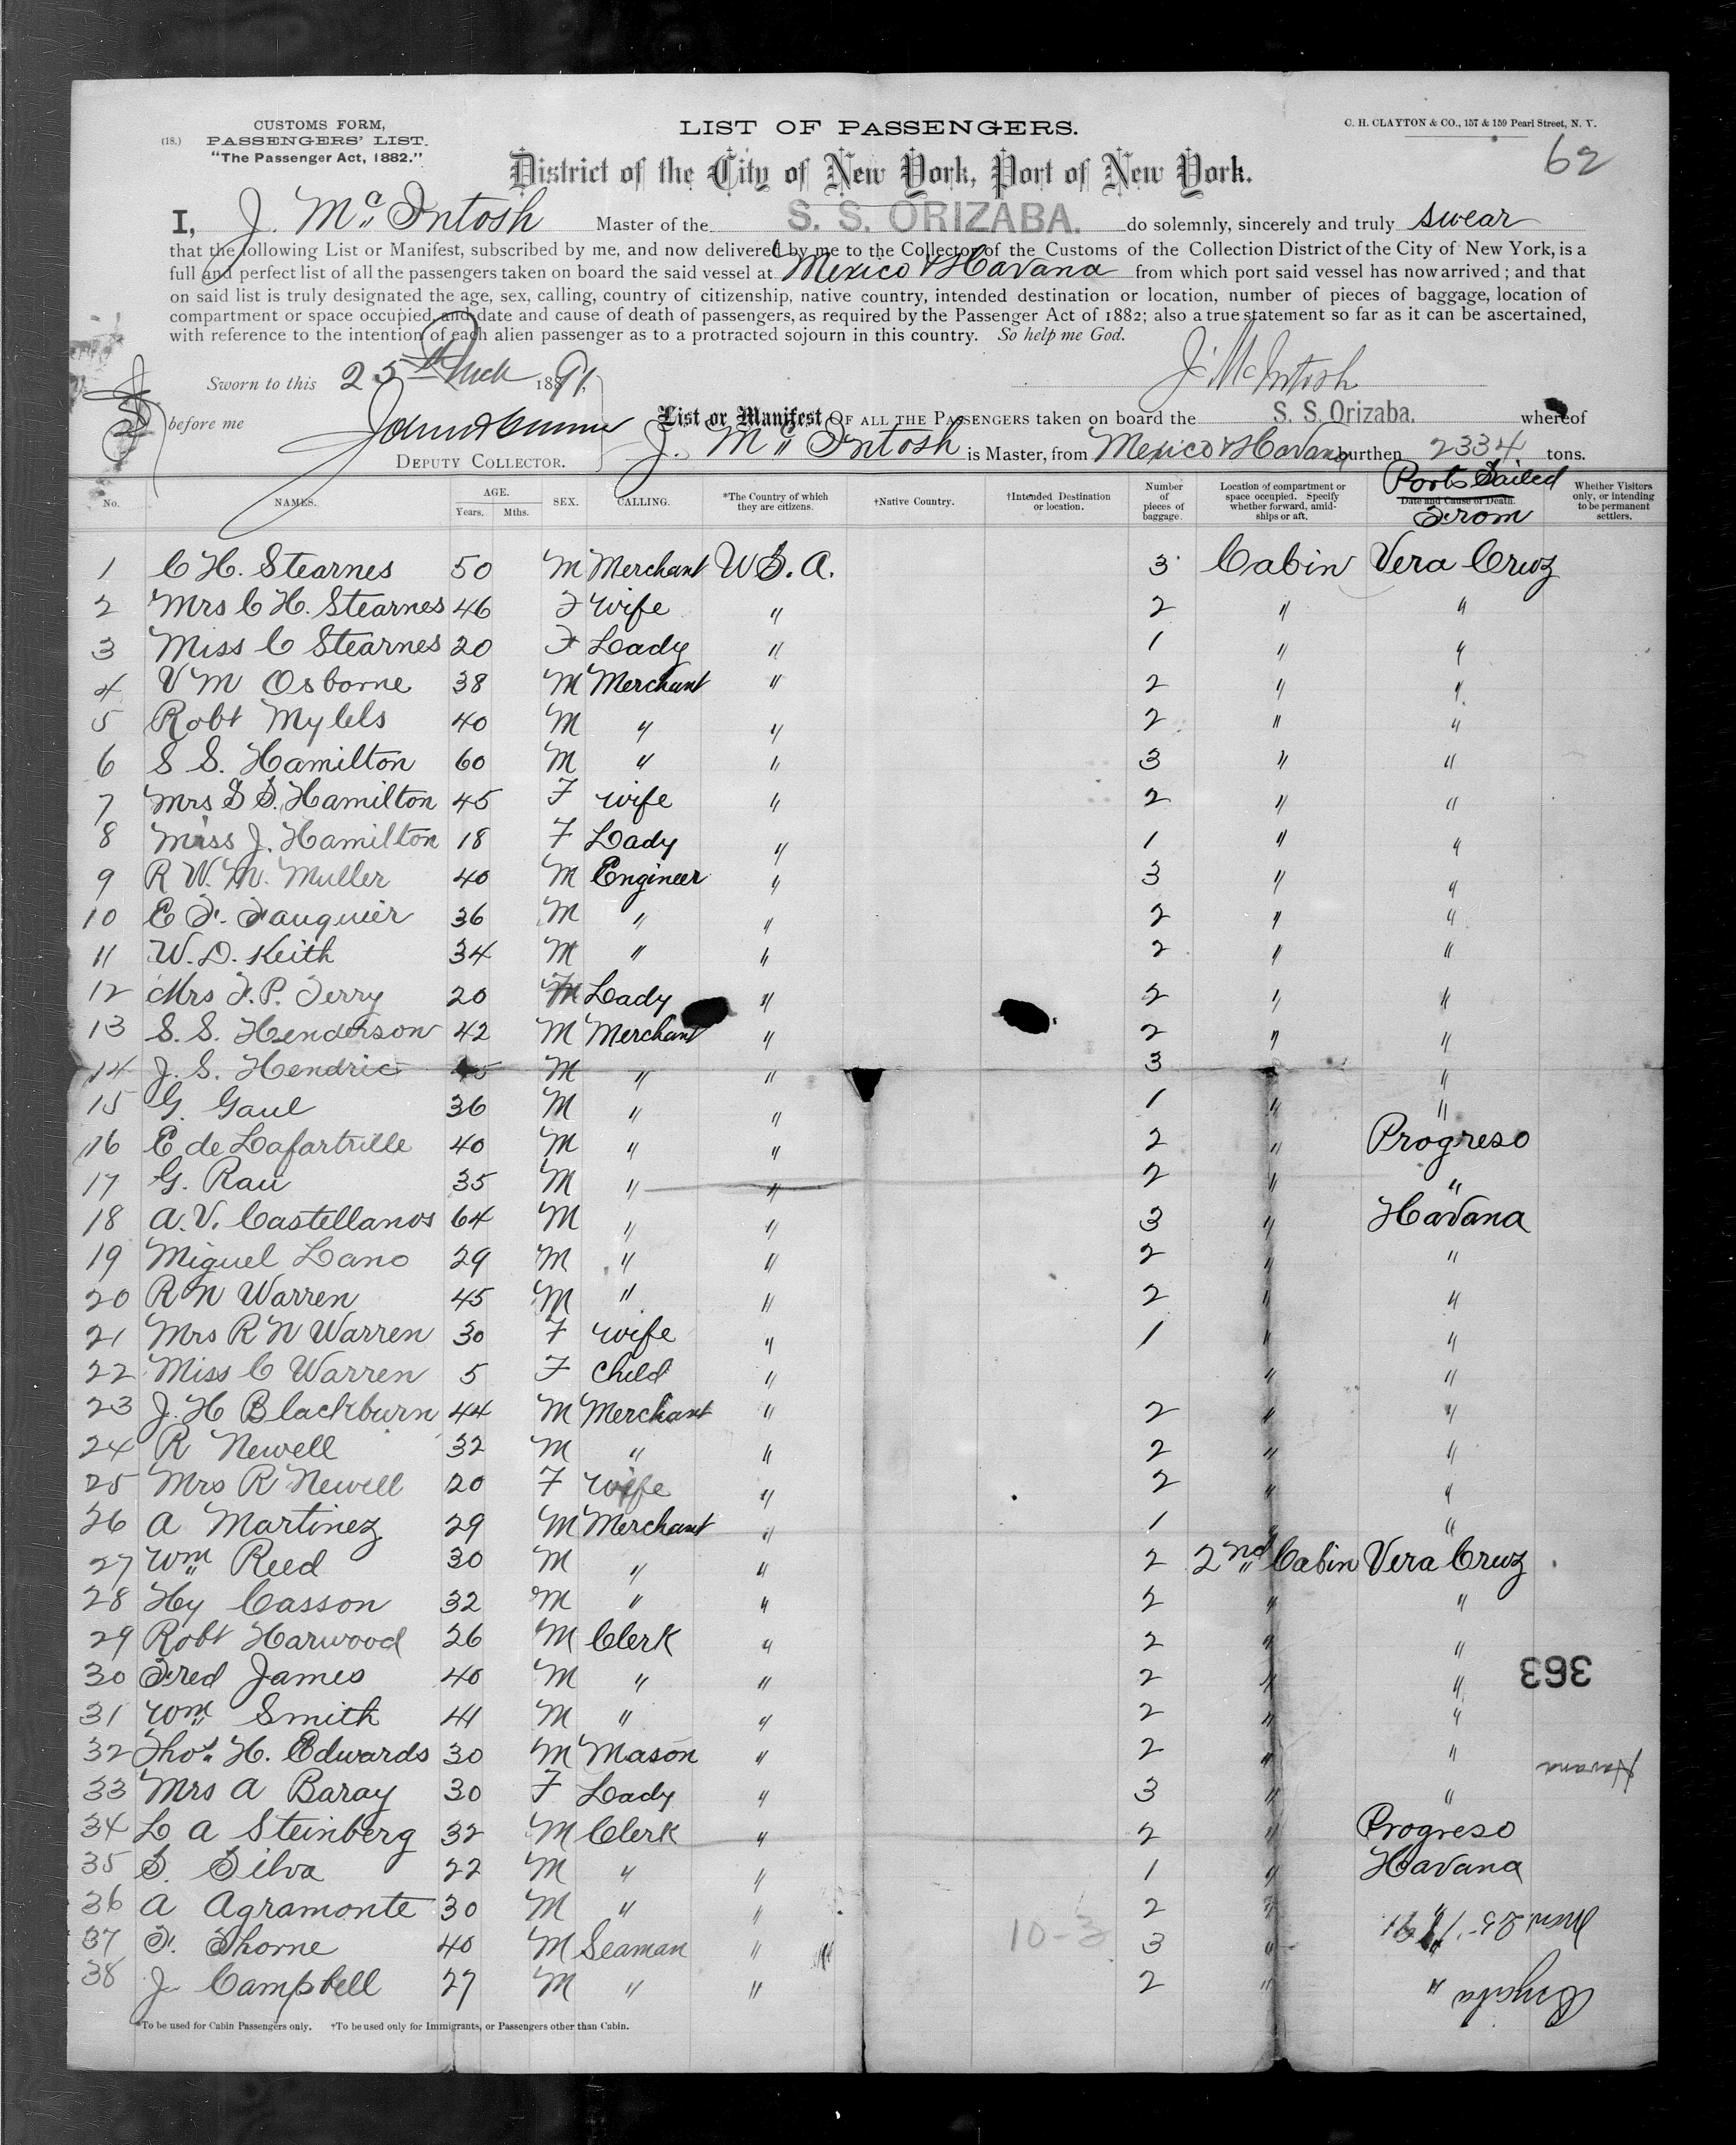 CUSTOMS FORM,
(18.) PASSENGERS' LIST.
"The Passenger Act, 1882."
LIST OF PASSENGERS.
C. H. CLAYTON & CO., 157 & 159 Pearl Street, N. Y.
62
District of the City of New York, Port of New York.
I, J. Mc Intosh Master of the S. S. ORIZABA. do solemnly, sincerely and truly swear
that the following List or Manifest, subscribed by me, and now delivered by me to the Collector of the Customs of the Collection District of the City of New York, is a
full and perfect list of all the passengers taken on board the said vessel at Mexico & Havana from which port said vessel has now arrived; and that
on said list is truly designated the age, sex, calling, country of citizenship, native country, intended destination or location, number of pieces of baggage, location of
compartment or space occupied, and date and cause of death of passengers, as required by the Passenger Act of 1882; also a true statement so far as it can be ascertained,
with reference to the intention of each alien passenger as to a protracted sojourn in this country. So help me God.
Sworn to this 25th Mch 1891
J. McIntosh
before me
List or Manifest OF ALL THE PASSENGERS taken on board the S. S. Orizaba. whereof
DEPUTY COLLECTOR.
J. Mc Intosh is Master, from Mexico & Havana burthen 2334 tons.
No. NAMES. AGE. Years. Mths. SEX. CALLING. *The Country of which they are citizens. †Native Country. †Intended Destination or location. Number of pieces of baggage. Location of compartment or space occupied. Specify whether forward, amidships or aft. Date and Cause of Death. Ports Sailed From Whether Visitors only, or intending to be permanent settlers.
1 C H. Stearnes 50 M Merchant U S. A. 3 Cabin Vera Cruz
2 Mrs C H. Stearnes 46 F Wife " 2 " "
3 Miss C Stearnes 20 F Lady " 1 " "
4 V M Osborne 38 M Merchant " 2 " "
5 Robt Mylels 40 M " " 2 " "
6 S S. Hamilton 60 M " " 3 " "
7 Mrs S S. Hamilton 45 F wife " 2 " "
8 Miss J. Hamilton 18 F Lady " 1 " "
9 R W. M. Muller 40 M Engineer " 3 " "
10 E F. Fauquier 36 M " " 2 " "
11 W. D. Keith 34 M " " 2 " "
12 Mrs F. P. Terry 20 F Lady " 2 " "
13 S. S. Henderson 42 M Merchant " 2 " "
14 J. S. Hendric 45 M " " 3 " "
15 G. Gaul 36 M " " 1 " "
16 E de Lafartrille 40 M " " 2 " Progreso
17 G. Rau 35 M " " 2 " "
18 A. V. Castellanos 64 M " " 3 " Havana
19 Miguel Lano 29 M " " 2 " "
20 R N Warren 45 M " " 2 " "
21 Mrs R N Warren 30 F wife " 1 " "
22 Miss C Warren 5 F Child " " "
23 J. H Blackburn 44 M Merchant " 2 " "
24 R Newell 32 M " " 2 " "
25 Mrs R Newell 20 F Wife " 2 " "
26 A Martinez 29 M Merchant " 1 " "
27 Wm Reed 30 M " " 2 2nd Cabin Vera Cruz
28 Hy Casson 32 M " " 2 " "
29 Robt Harwood 26 M Clerk " 2 " "
30 Fred James 40 M " " 2 " "
363
31 Wm Smith 41 M " " 2 " "
32 Thos. H. Edwards 30 M Mason " 2 " "
Havana
33 Mrs A Baray 30 F Lady " 3 " "
34 L A Steinberg 32 M Clerk " 2 " Progreso
35 S. Silva 22 M " " 1 " Havana
36 A Agramonte 30 M " " 2 " "
37 F. Thorne 40 M Seaman " 10-3 3 " "
38 J Campbell 27 M " " 2 " "
Orizaba
*To be used for Cabin Passengers only. †To be used only for Immigrants, or Passengers other than Cabin.